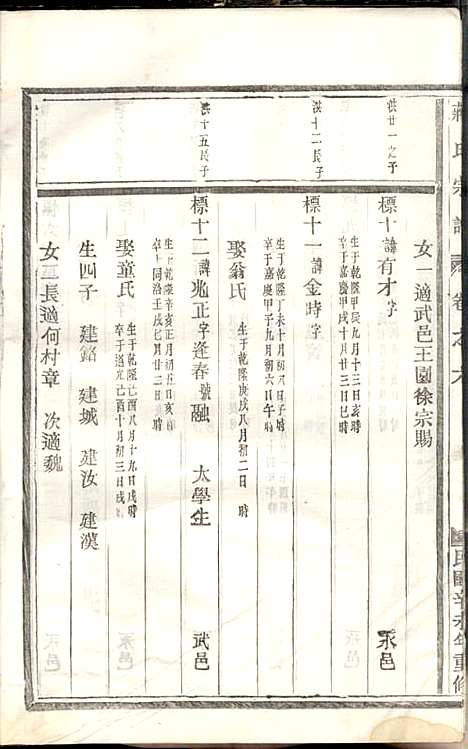 蔣氏宗譜
卷之六
民國辛未年重修
女一適武邑王園徐宗賜
洪廿一之子
標十諱有才字
永邑
生于乾隆甲辰九月十三日亥時
卒于嘉慶甲戌十月三十日巳時
洪十二長子
標十一諱金時字
生于乾隆丁未十月初八日子時
卒于嘉慶甲子九月初六日午時
娶翁氏
生于乾隆庚戌八月初二日 時
洪十五長子
標十二諱兆正字逢春號融
太學生
武邑
生于乾隆辛亥正月初五日亥時
卒于同治壬戌七月廿二日辰時
娶童氏
生于乾隆己酉八月十九日戌時
卒于道光己酉十月初三日戌時
生四子 建銘 建城 建汝 建漢
女二長適何村章 次適魏